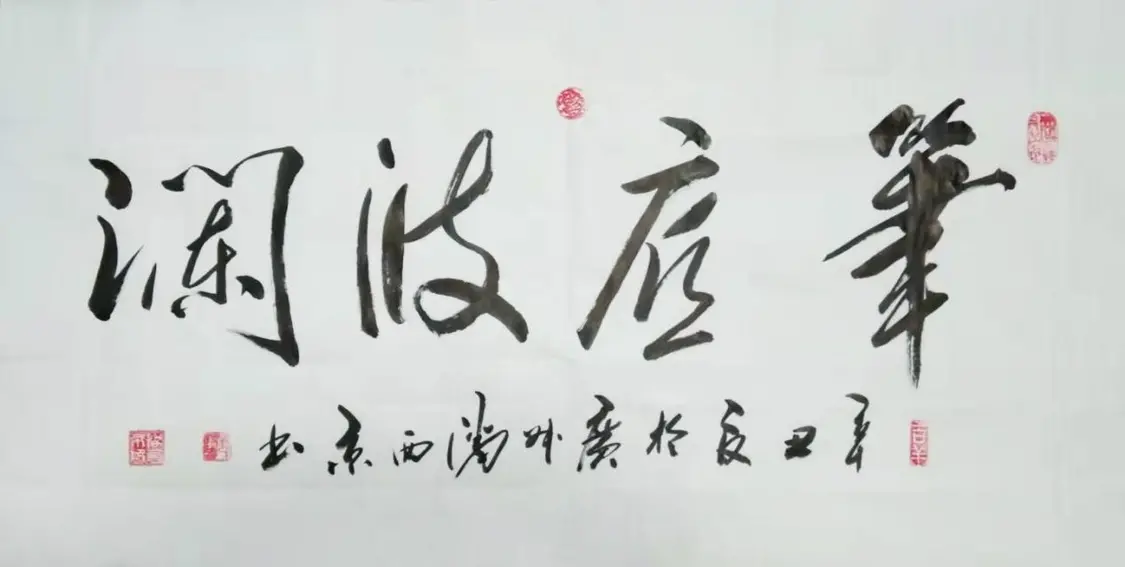 筆底波瀾
辛丑夏於廣州灣西京書